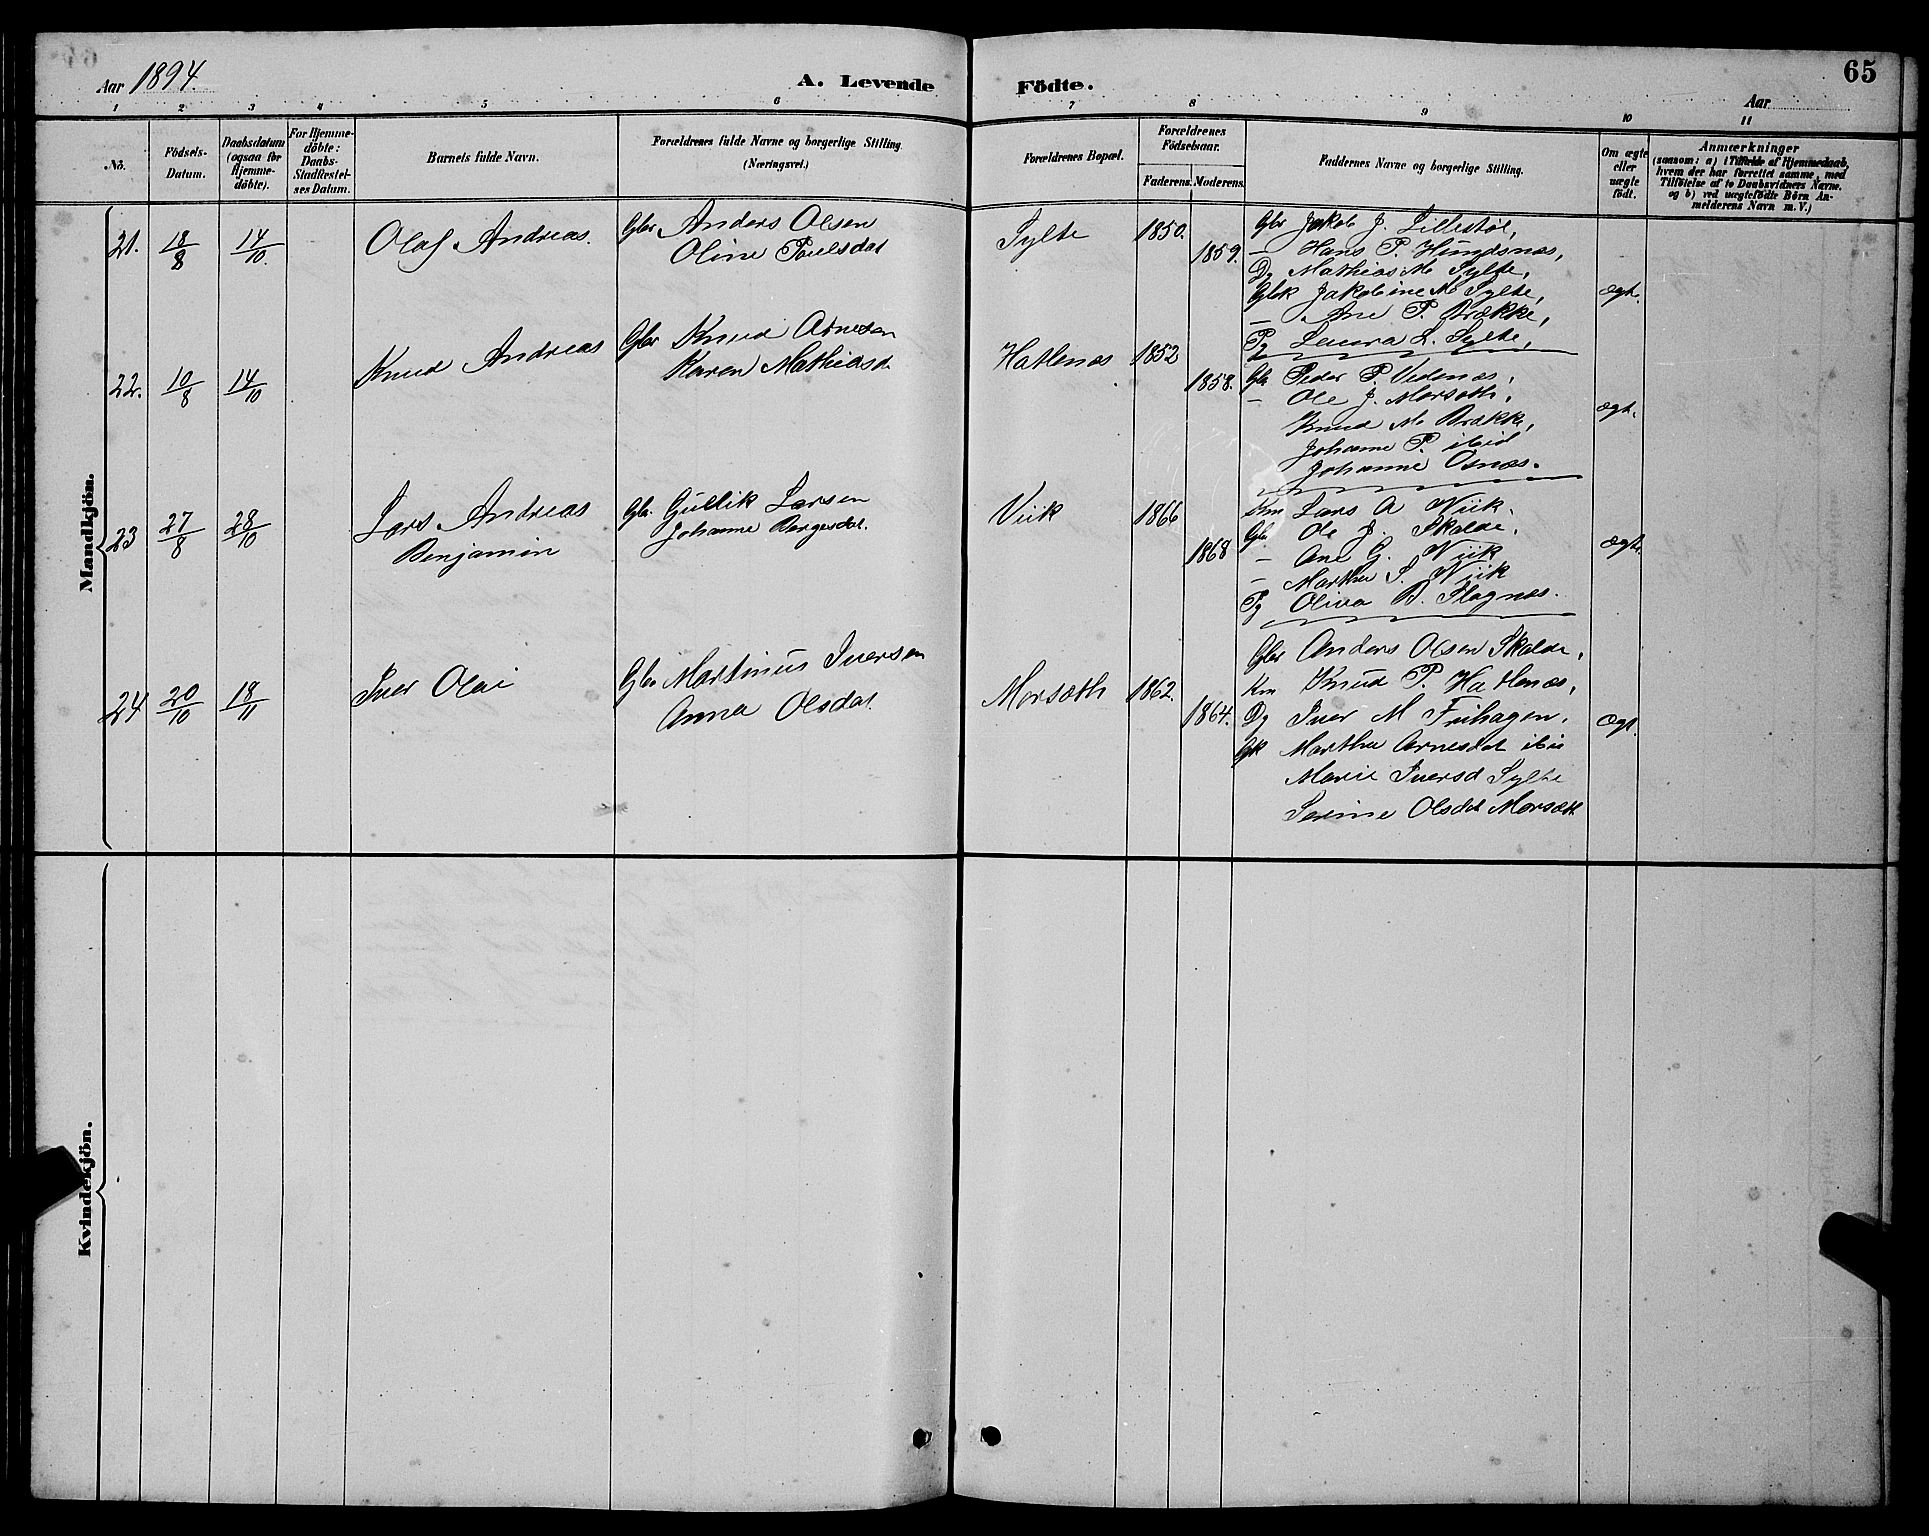 Aar 1894. A. Levende Fødte. 65
Aar
1 2 3 4 5 6 7 8 9 10 11
No.
Födsels-
Datum.
Daabsdatum
(ogsaa for
Hjemme-
döbte).
For Hjemme-
döbte:
Daabs-
Stadfæstel-
ses Datum.
Barnets fulde Navn.
Forældrenes fulde Navne og borgerlige Stilling.
(Næringsvei.)
Forældrenes Bopæl.
Forældrenes
Födselsaar.
Faderens. Moderens.
Faddernes Navne og borgerlige Stilling.
Om ægte
eller
uægte
födt.
Anmærkninger
(saasom: a) i Tilfælde af Hjemmedaab,
hvem der har forrettet samme, med
Tilföielse af to Daabsvidners Navne.
og b) ved uægtefödte Börn An-
melderens Navn m.V.)
Mandkjön.
21. 18/8 14/10. Olaf Andreas. Gbr Anders Olsen
Oline Poulsdat
Sylte 1850. 1859.
Gbr Jakob J. Lillestøl,
— Hans P. Hundsnæs,
Dg Mathias M. Sylte,
Gbk Jakobine M Sylte, ægt.
— Ane P. Brække,
Pg Laura L. Sylte,
22. 10/8 14/10 Knud Andreas Gbr Knud Arnesen
Karen Mathiasd.
Hatlenæs 1852 1858.
Gbr Peder P. Vedenæs,
— Ole J. Morsæth,
Knud M. Brække, ægt.
Johanne P. ibid
Johanne Osnæs.
23 27/8 28/10 Lars Andreas
Benjamin
Gbr. Gullik Larsen
Johanne Borgesdat.
Viik 1866 1868
Km Lars A Viik.
Gbr Ole J. Skalde,
— Ane G. Viik ægte
— Martha S. Viik
Pg Oliva B. Slagnæs.
24 20/10 18/11 Iver Olai Gbr Martinus Iversen
Anna Olsdat.
Morsæth 1862. 1864.
Gbr Anders Olsen Skalde,
Km Knud P. Hatlenæs,
Dg Iver M Frihagen, ægt.
Gk Martha Arnesdat ibid
Marie Iversd Sylte
Serine Olsdat Morsæth
Kvindekjön.